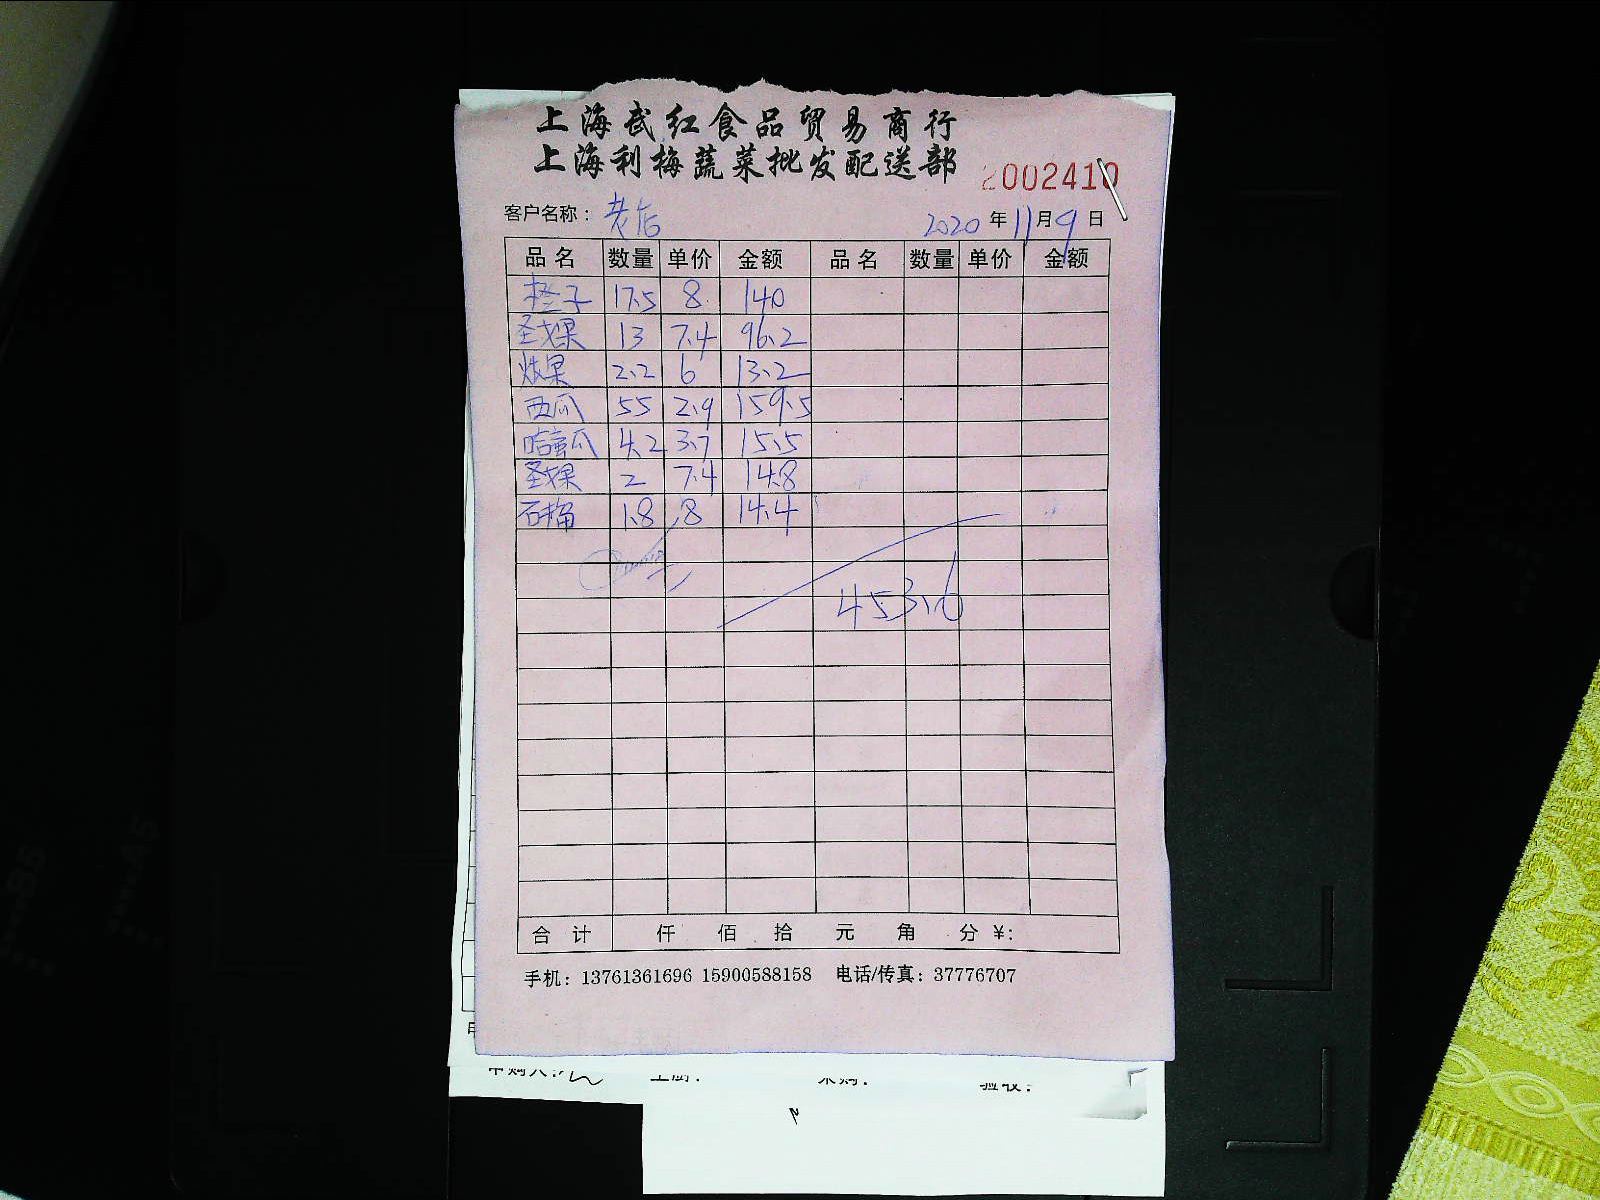 上海武红食品贸易商行
上海利梅蔬菜批发配送部
2002410
客户名称： 老店 2020 年 11 月 9 日
品名 数量 单价 金额 品名 数量 单价 金额
橙子 17.5 8 140
圣女果 13 7.4 96.2
火龙果 2.2 6 13.2
西瓜 55 2.9 159.5
哈密瓜 4.2 3.7 15.5
圣女果 2 7.4 14.8
石榴 1.8 8 14.4
453.6
合计 仟 佰 拾 元 角 分 ¥:
手机：13761361696 15900588158 电话/传真：37776707
申购人: 主厨: 采购: 验收: